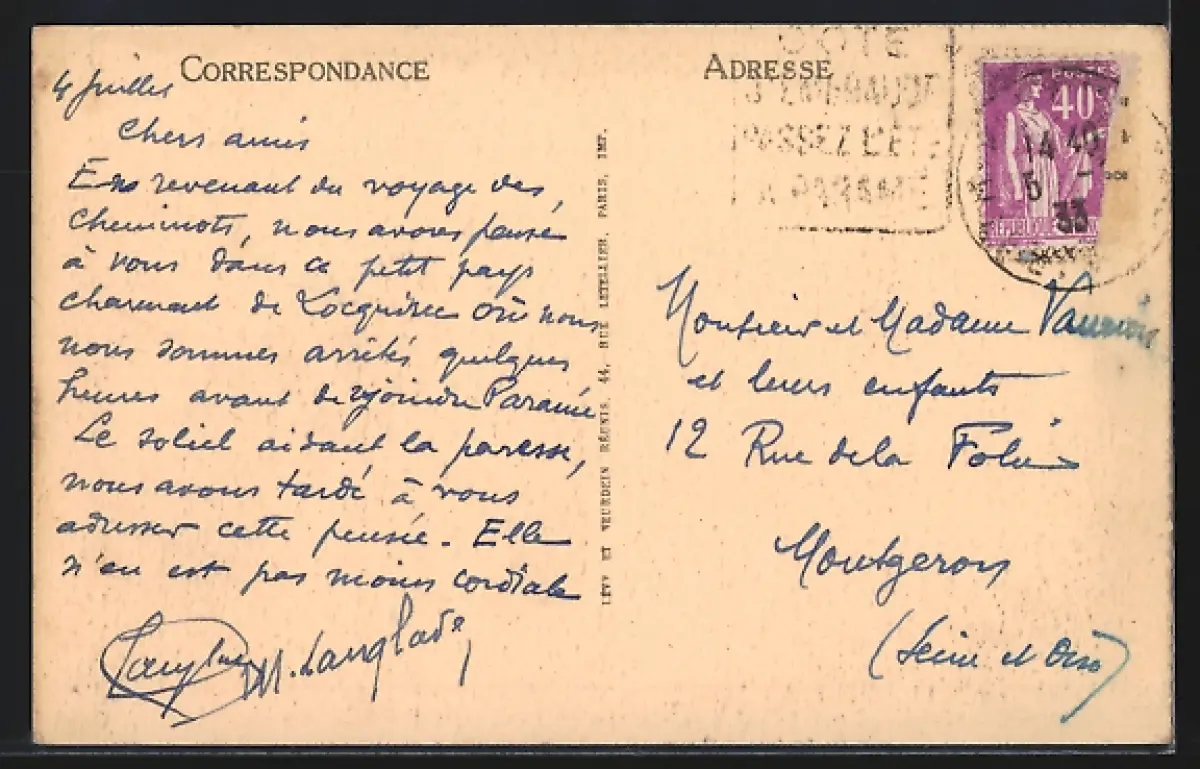 CORRESPONDANCE
4 Juillet
Chers amis
En revenant du voyage des
cheminots, nous avons pensé
à vous dans ce petit pays
charmant de Locquirec où nous
nous sommes arrêtés quelques
heures avant de rejoindre Paramé
Le soleil aidant la paresse,
nous avons tardé à vous
adresser cette pensée. Elle
n'en est pas moins cordiale
M. Langlade
LÉVY ET NEURDEIN RÉUNIS, 44, RUE LETELLIER, PARIS, IMP.
ADRESSE
COTE
D'EMERAUDE
PASSEZ L'ETE
A PARAME
POSTES
40c
REPUBLIQUE
14 40
5 -
33
Monsieur et Madame
et leurs enfants
12 Rue de la Folie
Montgeron
(Seine et Oise)